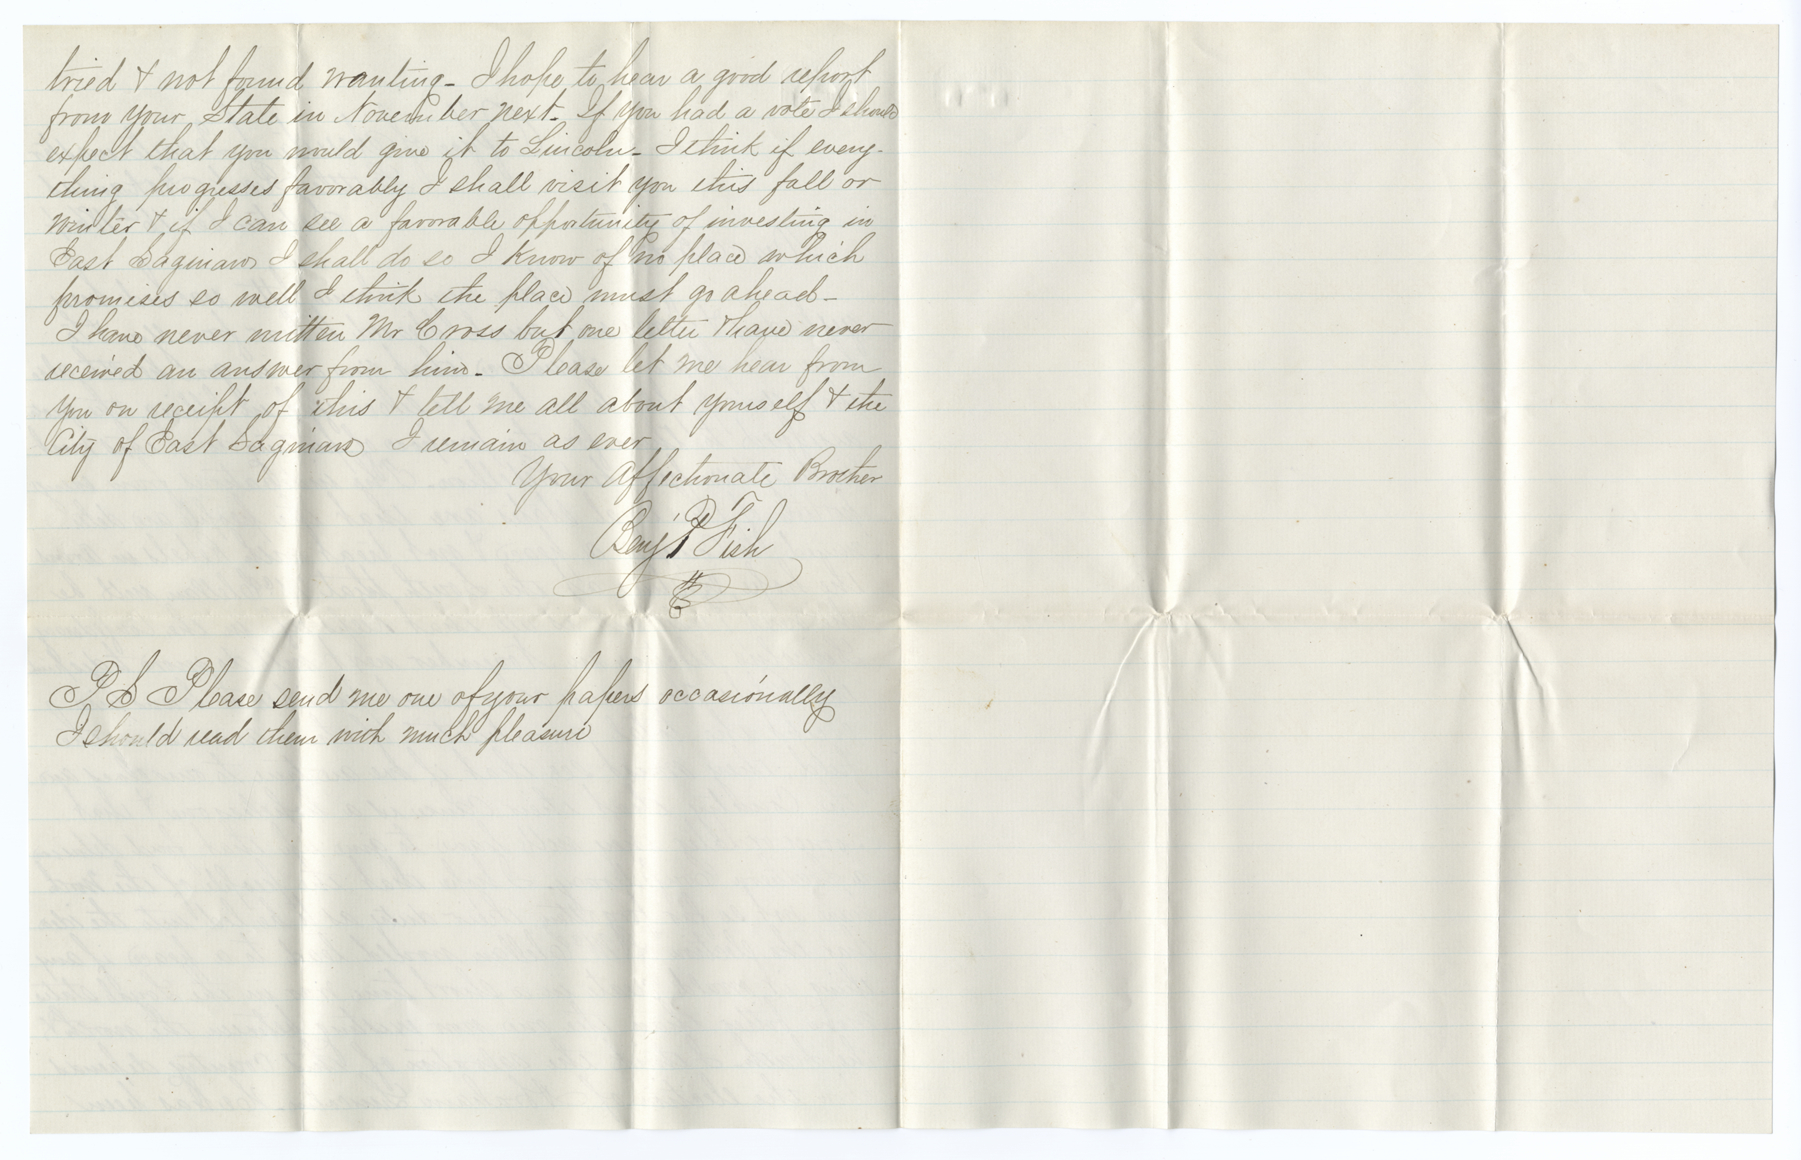 tried & not found wanting - I hope to hear a good report
from your State in November next - If you had a vote I should
expect that you would give it to Lincoln - I think if every-
thing progresses favorably I shall visit you this fall or
winter & if I can see a favorable opportunity of investing in
East Saginaw I shall do so I know of no place which
promises so well I think the place must go ahead -
I have never written Mr Cross but one letter & have never
received an answer from him - Please let me hear from
you on receipt of this & tell me all about yourself & the
City of East Saginaw I remain as ever
Your Affectionate Brother
Benj P Fish
P S Please send me one of your papers occasionally
I should read them with much pleasure